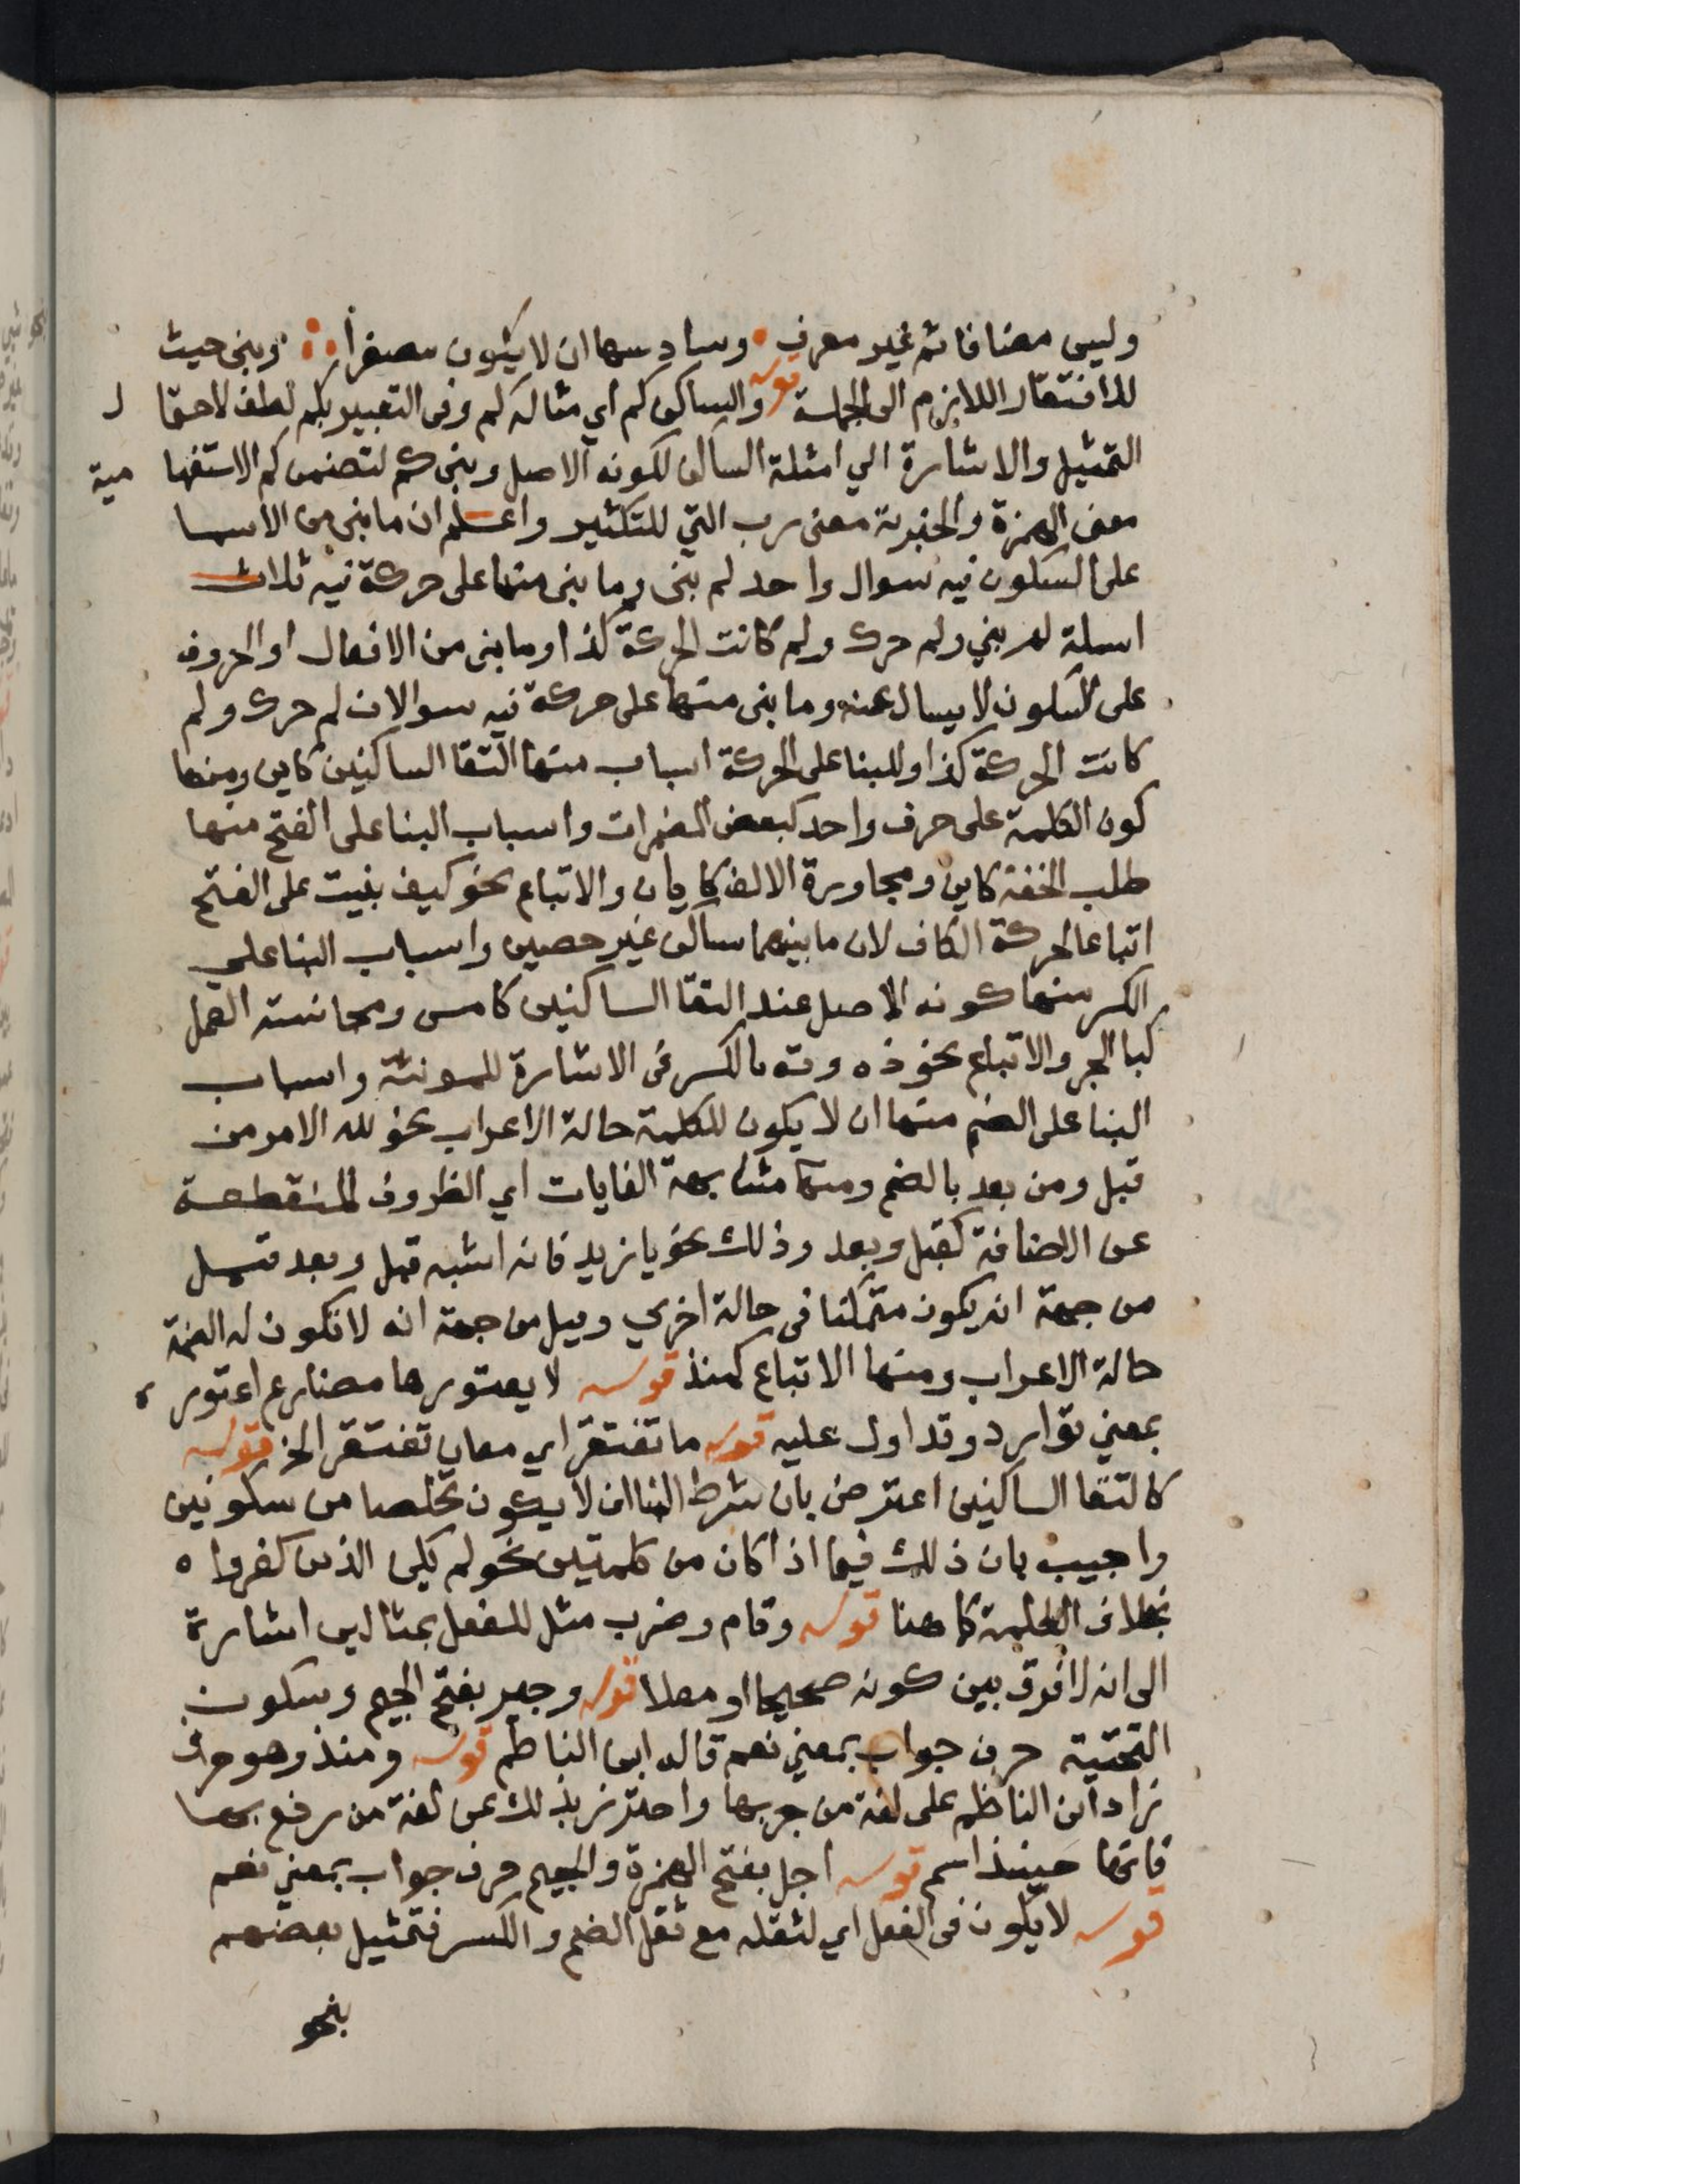 وليس مضافا ثم غير معرف وسادسها ان لا يكون مصغرا وبنى حيث
للافتقار اللازم الى الجملة قوله والساكن كم اي مثاله كم وفى التعبير بكم لطف لاحتمال
التمثيل والاشارة الي امثلة الساكن لكونه الاصل وبنى كم لتضمن كم الاستفهامية
معنى الهمزة والخبرية معنى رب التي للتكثير واعلم ان ما بنى من الاسما
على السكون فيه سوال واحد لم بنى وما بنى منها على حركة فيه ثلاث
اسيلة لم بني ولم حرك ولم كانت الحركة كذا وما بنى من الافعال او الحروف
على السكون لا يسال عنه وما بنى منها على حركة فيه سوالان لم حرك ولم
كانت الحركة كذا وللبنا على الحركة اسباب منها التقا الساكنين كاين ومنها
كون الكلمة على حرف واحد كبعض المضمرات واسباب البنا على الفتح منها
طلب الخفة كاين ومجاورة الالف كايان والاتباع نحو كيف بنيت على الفتح
اتباعا لحركة الكاف لان ما بينهما ساكن غير حصين واسباب البنا علي
الكسر منها كونه الاصل عند التقا الساكنين كامس ومجانسة العمل
كبا الجر والاتباع نحو ذه وته بالكسر فى الاشارة للمونثة واسباب
البنا على الضم منها ان لا يكون للكلمة حالة الاعراب نحو لله الامر من
قبل ومن بعد بالضم ومنها مشابهة الغايات اي الظروف المنقطعة
عن الاضافة كقبل وبعد وذلك نحو يا زيد فانه اشبه قبل وبعد قيل
من جهة انه يكون متمكنا فى حالة اخري وقيل من جهة انه لا تكون له الضمة
حالة الاعراب ومنها الاتباع كمنذ قوله لا يعتورها مضارع اعتور
بمعني توارد وتداول عليه قوله ما تفتقر اي معان تفتقر الخ قوله
كالتقا الساكنين اعترض بان شرط البنا ان لا يكون تخلصا من سكونين
واجيب بان ذلك فيما اذا كان من كلمتين نحو لم يكن الذين كفروا
بخلاف الكلمة كما هنا قوله وقام وضرب مثل للفعل بمثالين اشارة
الى انه لا فرق بين كونه صحيحا او معلا قوله وجير بفتح الجيم وسكون
التحتية حرف جواب بمعني نعم قاله ابن الناظم قوله ومنذ وهو حرف
زاد ابن الناظم على لغة من جر بها واحترز بذلك عن لغة من رفع بها
فانها حينئذ اسم قوله اجل بفتح الهمزة والجيم حرف جواب بمعني نعم
قوله لا يكون فى الفعل اي لثقله مع ثقل الضم والكسر فتمثيل بعضهم
بنحو